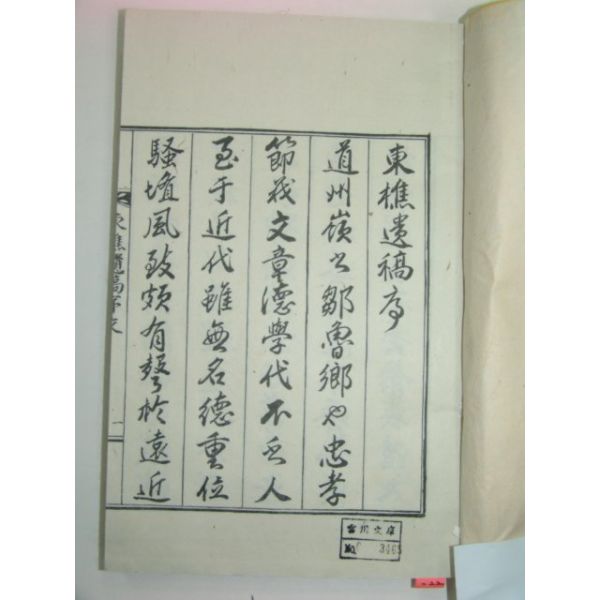 東樵遺稿序
道州嶺之鄒魯鄉也忠孝
節義文章德學代不乏人
至于近代雖無名德重位
騷壇風致頗有聲於遠近
東樵遺稿序文
一
文庫
No. 3463